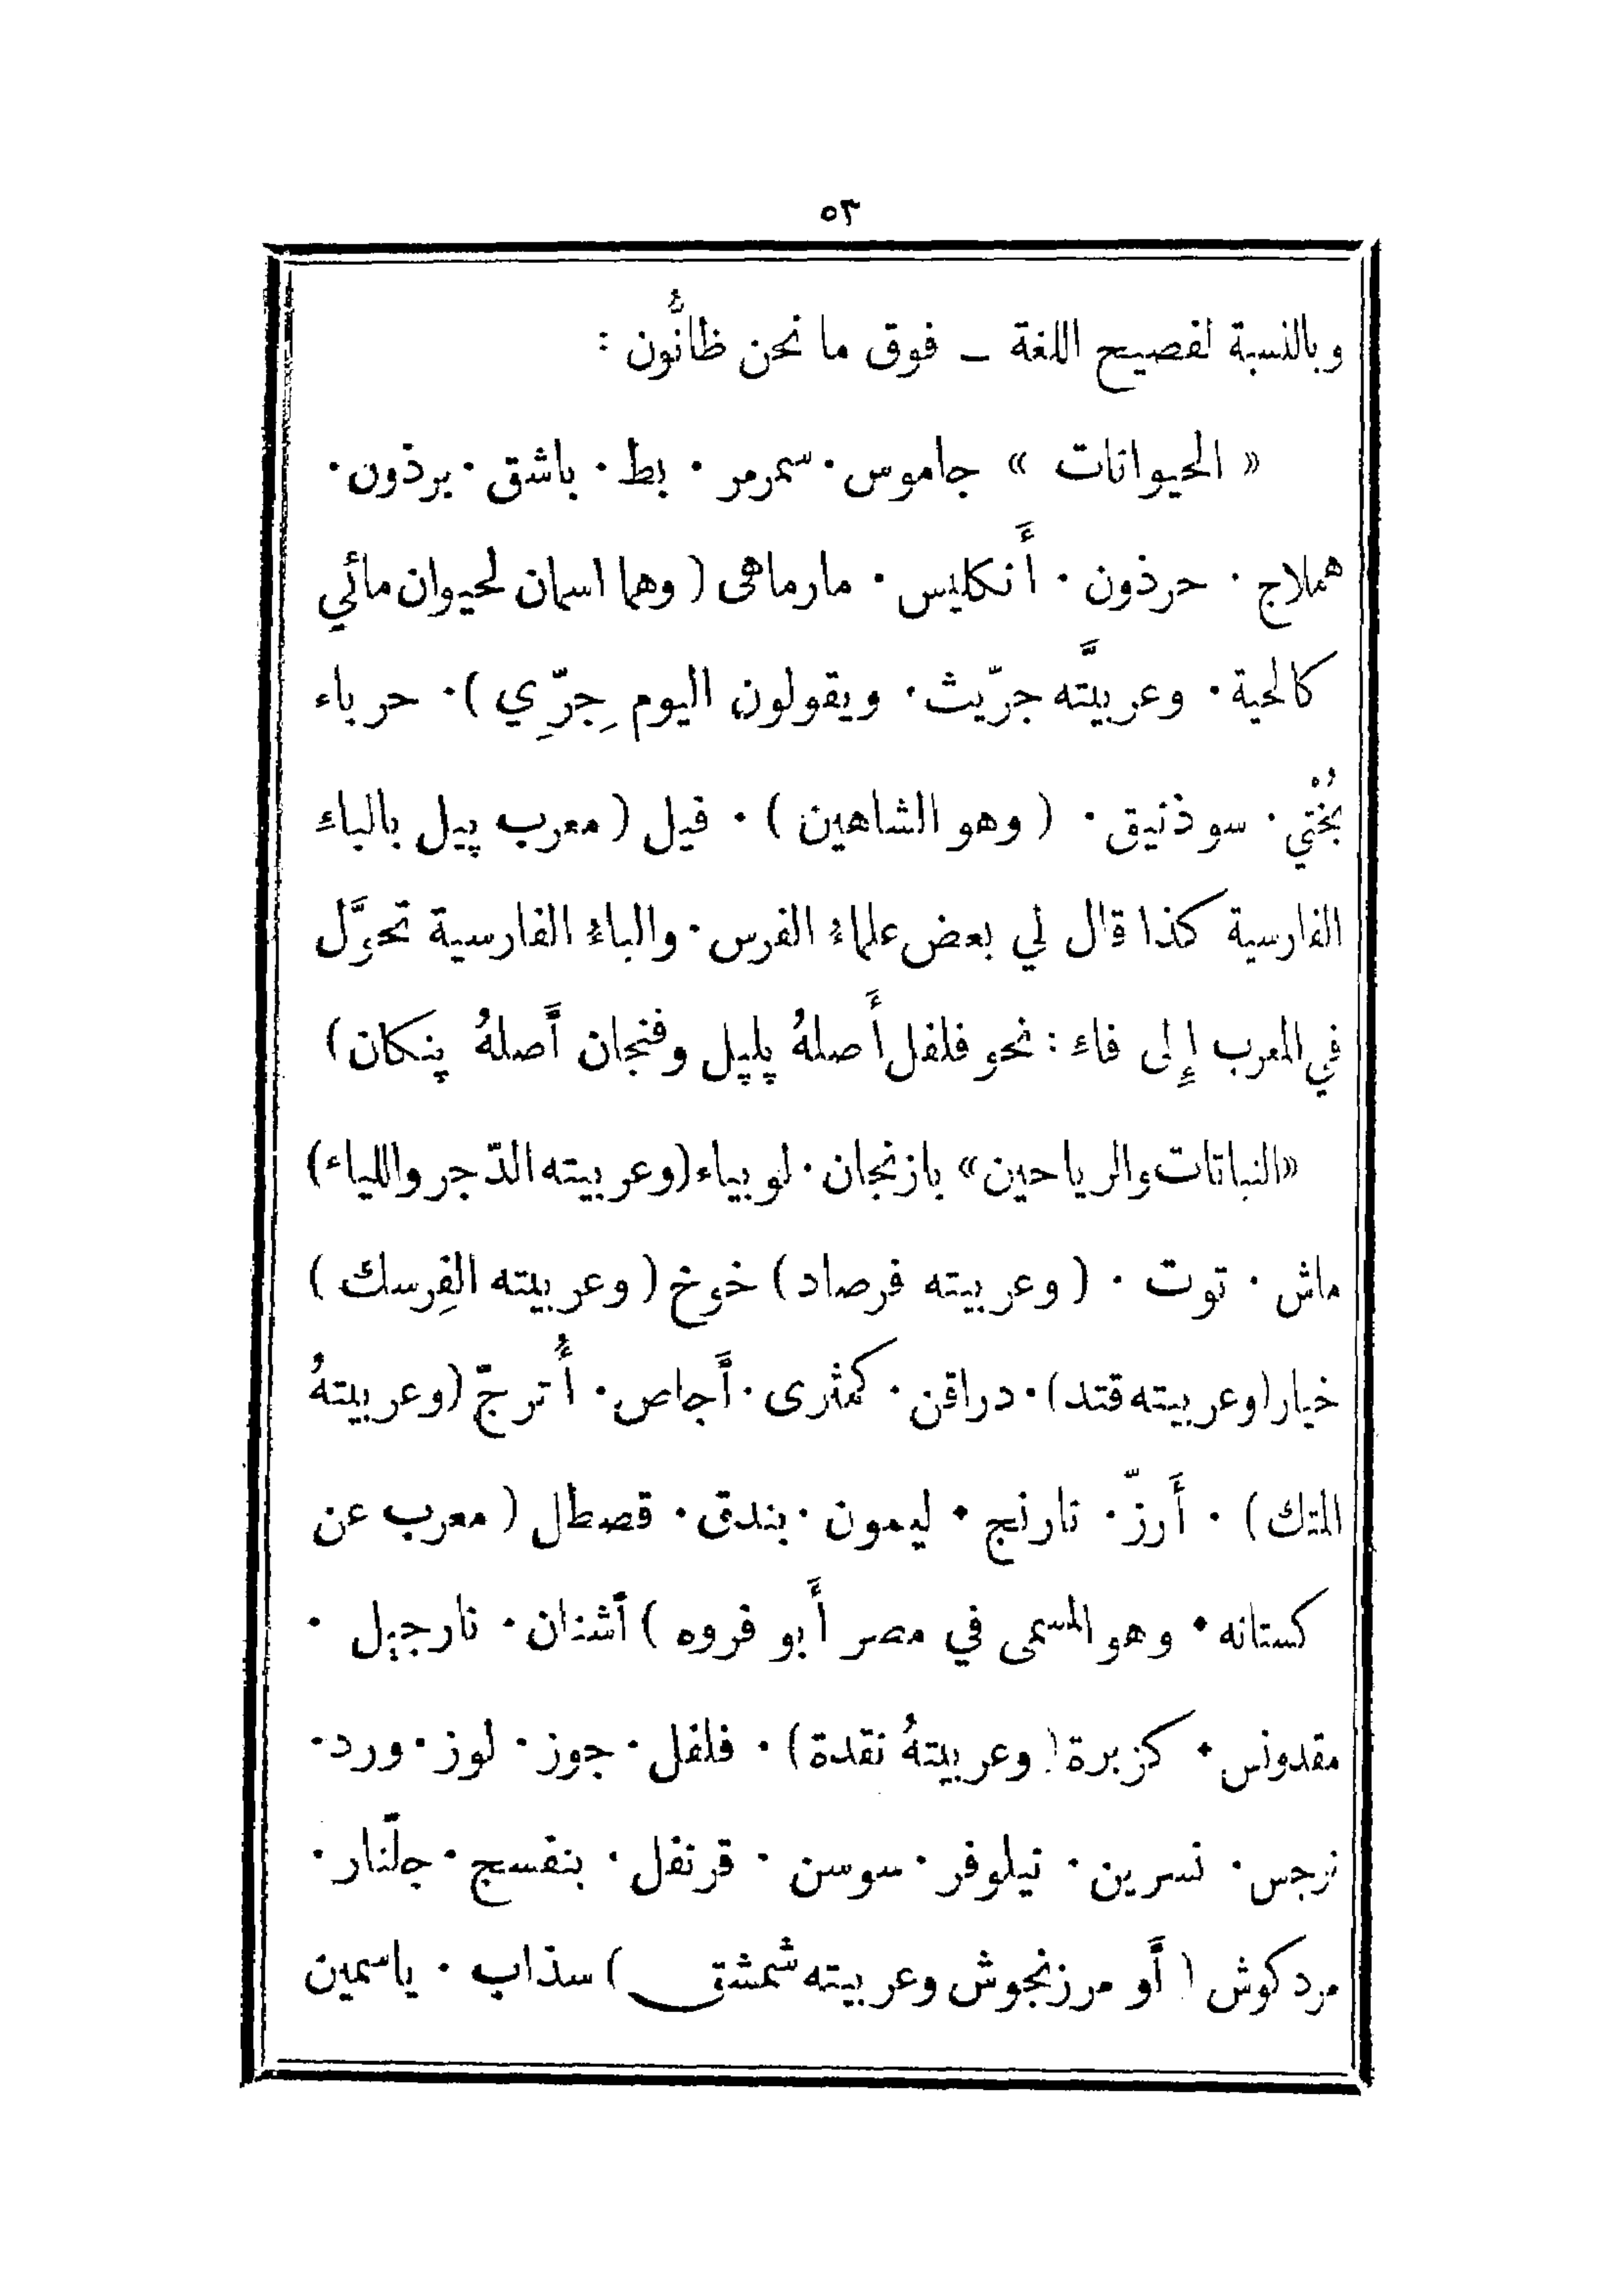 ٥٣
وبالنسبة لفصيح اللغة ــ فوق ما نحن ظانُّون :
« الحيوانات » جاموس · سمرمر · بط · باشق · برذون ·
هملاج · حرذون · أَنكليس · مارماهى ( وهما اسمان لحيوان مائي
كالحية · وعربيَّته جرّيث · ويقولون اليوم جِرّي ) · حرباء
بُخْتي · سوذنيق · ( وهو الشاهين ) · فيل ( معرب پيل بالباءِ
الفارسية كذا قال لي بعض علماءُ الفرس · والباءُ الفارسية تحوَّل
في المعرب إِلى فاءِ : نحو فلفل أَصلهُ پلپل وفنجان أَصلهُ پنكان )
«النباتات والرياحين» بازنجان · لوبياء (وعربيته الدّجر واللياء)
ماش · توت · ( وعربيته فرصاد ) خوخ ( وعربيته الفِرسك )
خيار (وعربيته قتد) · دراقن · كمثرى · أَجاص · أُترجّ (وعربيتهُ
المتك ) · أَرزّ · نارنج · ليمون · بندق · قصطل ( معرب عن
كستانه · وهو المسمى في مصر أَبو فروه ) أَشنان · نارجيل ·
مقدونس · كزبرة ( وعربيتهُ نقدة ) · فلفل · جوز · لوز · ورد ·
نرجس · نسرين · نيلوفر · سوسن · قرنفل · بنفسج · جلّنار ·
مردكوش ( أَو مرزنجوش وعربيته شمشق ) سذاب · ياسمين